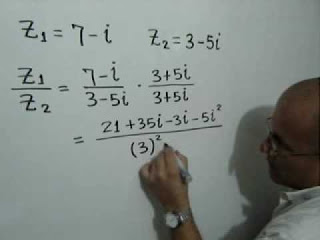 Z₁ = 7 - i   Z₂ = 3 - 5i
Z₁/Z₂ = (7 - i)/(3 - 5i) · (3 + 5i)/(3 + 5i)
= (21 + 35i - 3i - 5i²)/((3)²